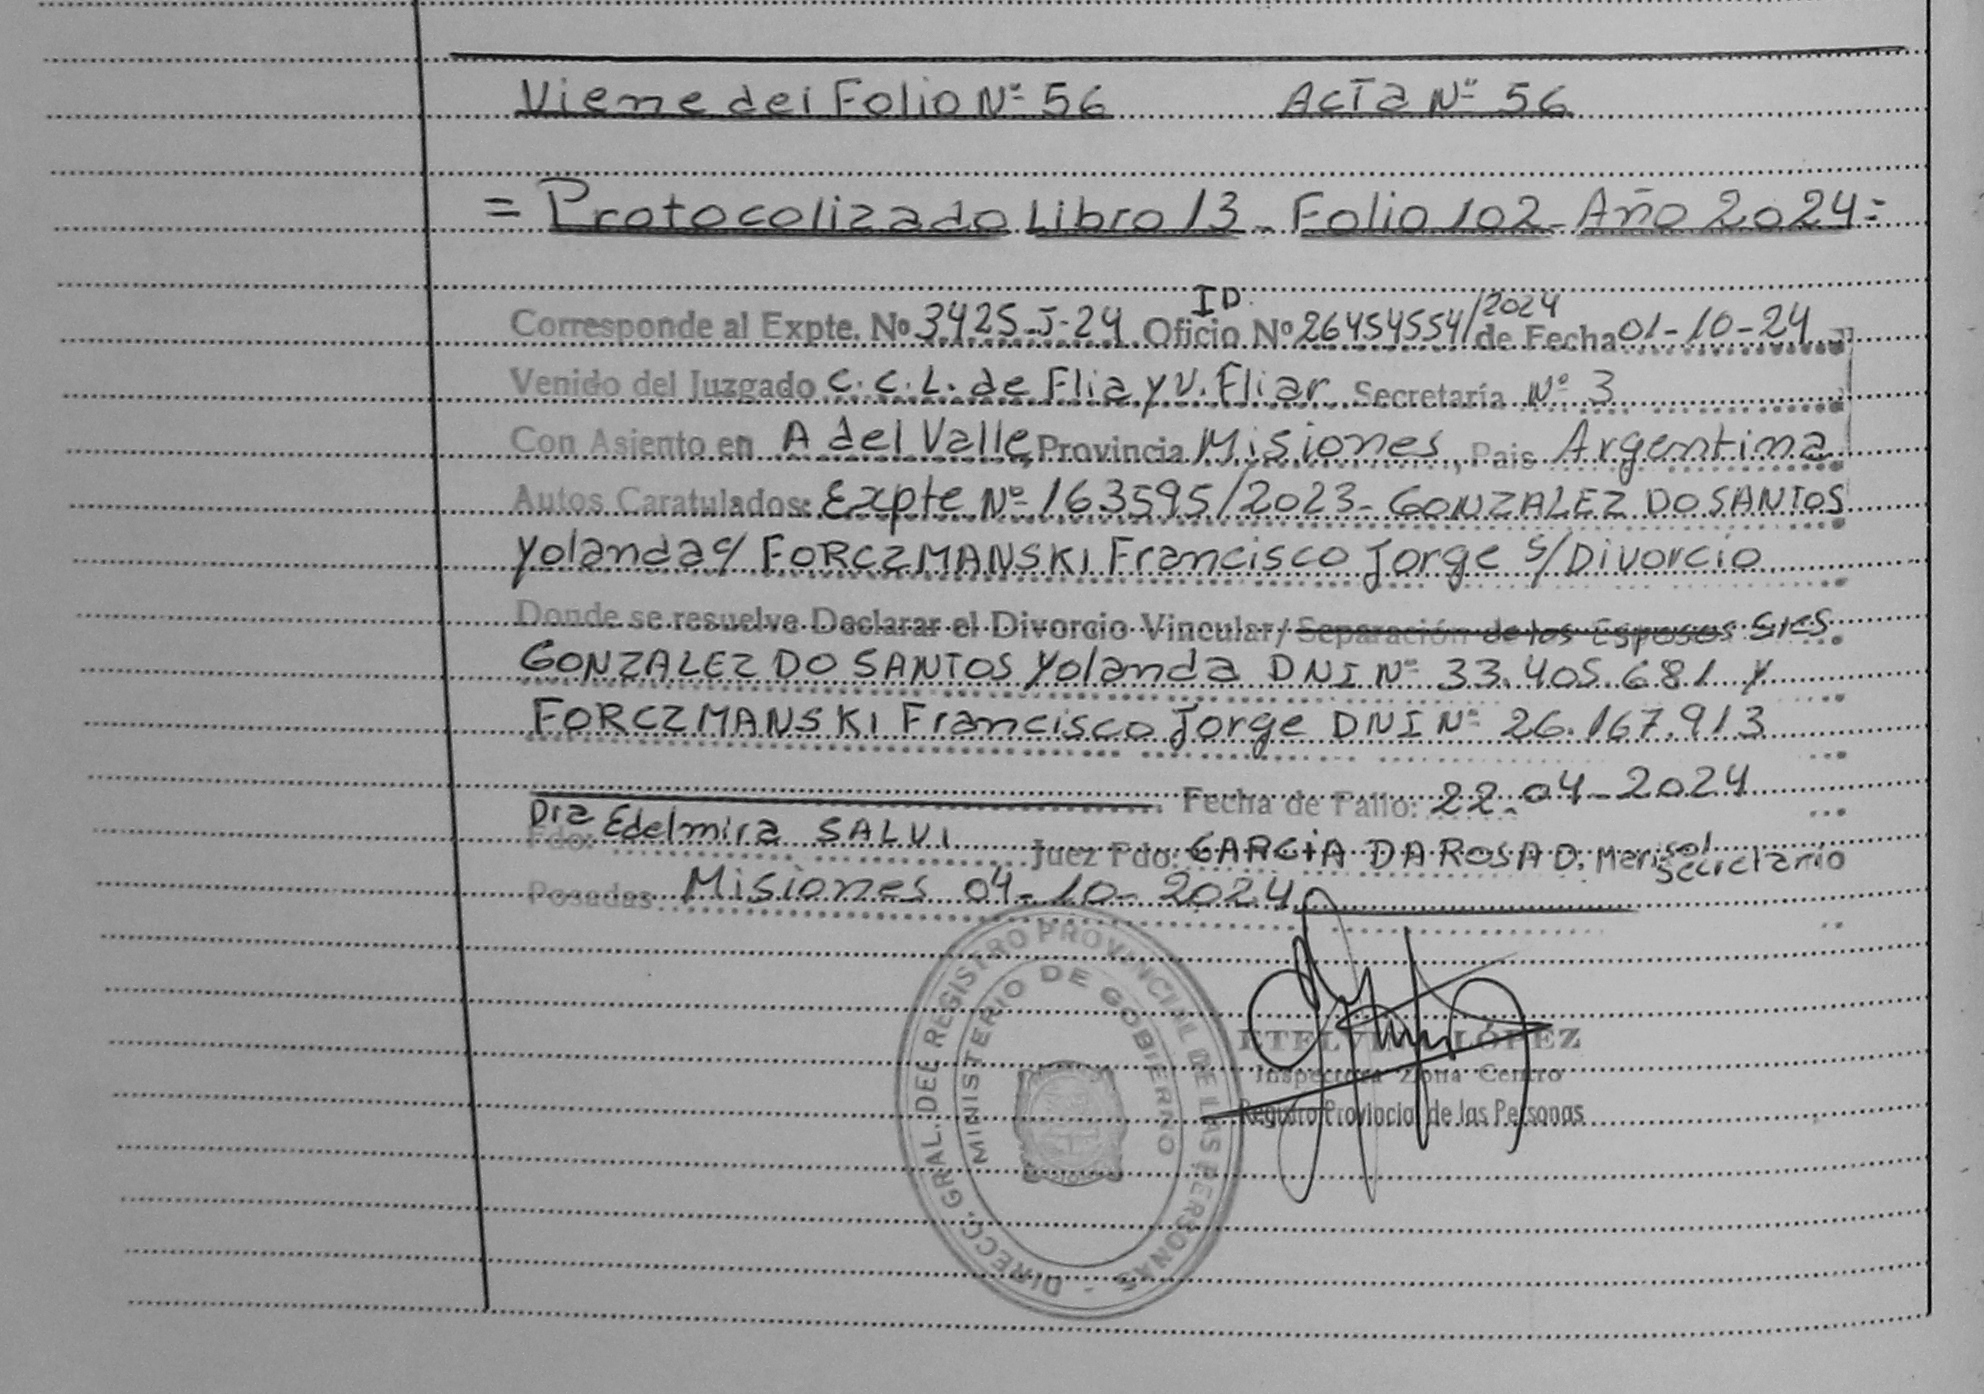 Viene del Folio Nº 56 Acta Nº 56
= Protocolizado Libro 13 - Folio 102 - Año 2024 =
Corresponde al Expte. Nº 3425-J-24 Oficio ID Nº 26454554/2024 de Fecha 01-10-24
Venido del Juzgado C.C.L. de Flia y V. Fliar Secretaría Nº 3
Con Asiento en A del Valle, Provincia Misiones, Pais Argentina
Autos Caratulados: Expte Nº 163595/2023 - GONZALEZ DO SANTOS
Yolanda c/ FORCZMANSKI Francisco Jorge s/ Divorcio
Donde se resuelve Declarar el Divorcio Vincular/ Separación de los Esposos Sres
GONZALEZ DO SANTOS Yolanda DNI Nº 33.405.681 y
FORCZMANSKI Francisco Jorge DNI Nº 26.167.913
Fecha de Fallo: 22-04-2024
Fdo: Dra Edelmira SALVI Juez Fdo: GARCIA DA ROSA D. Marisol Secretario
Posadas Misiones 04-10-2024
DIRECC. GRAL. DEL REGISTRO PROVINCIAL DE LAS PERSONAS
MINISTERIO DE GOBIERNO
ETELVINA LÓPEZ
Inspectora Zona Centro
Registro Provincial de las Personas